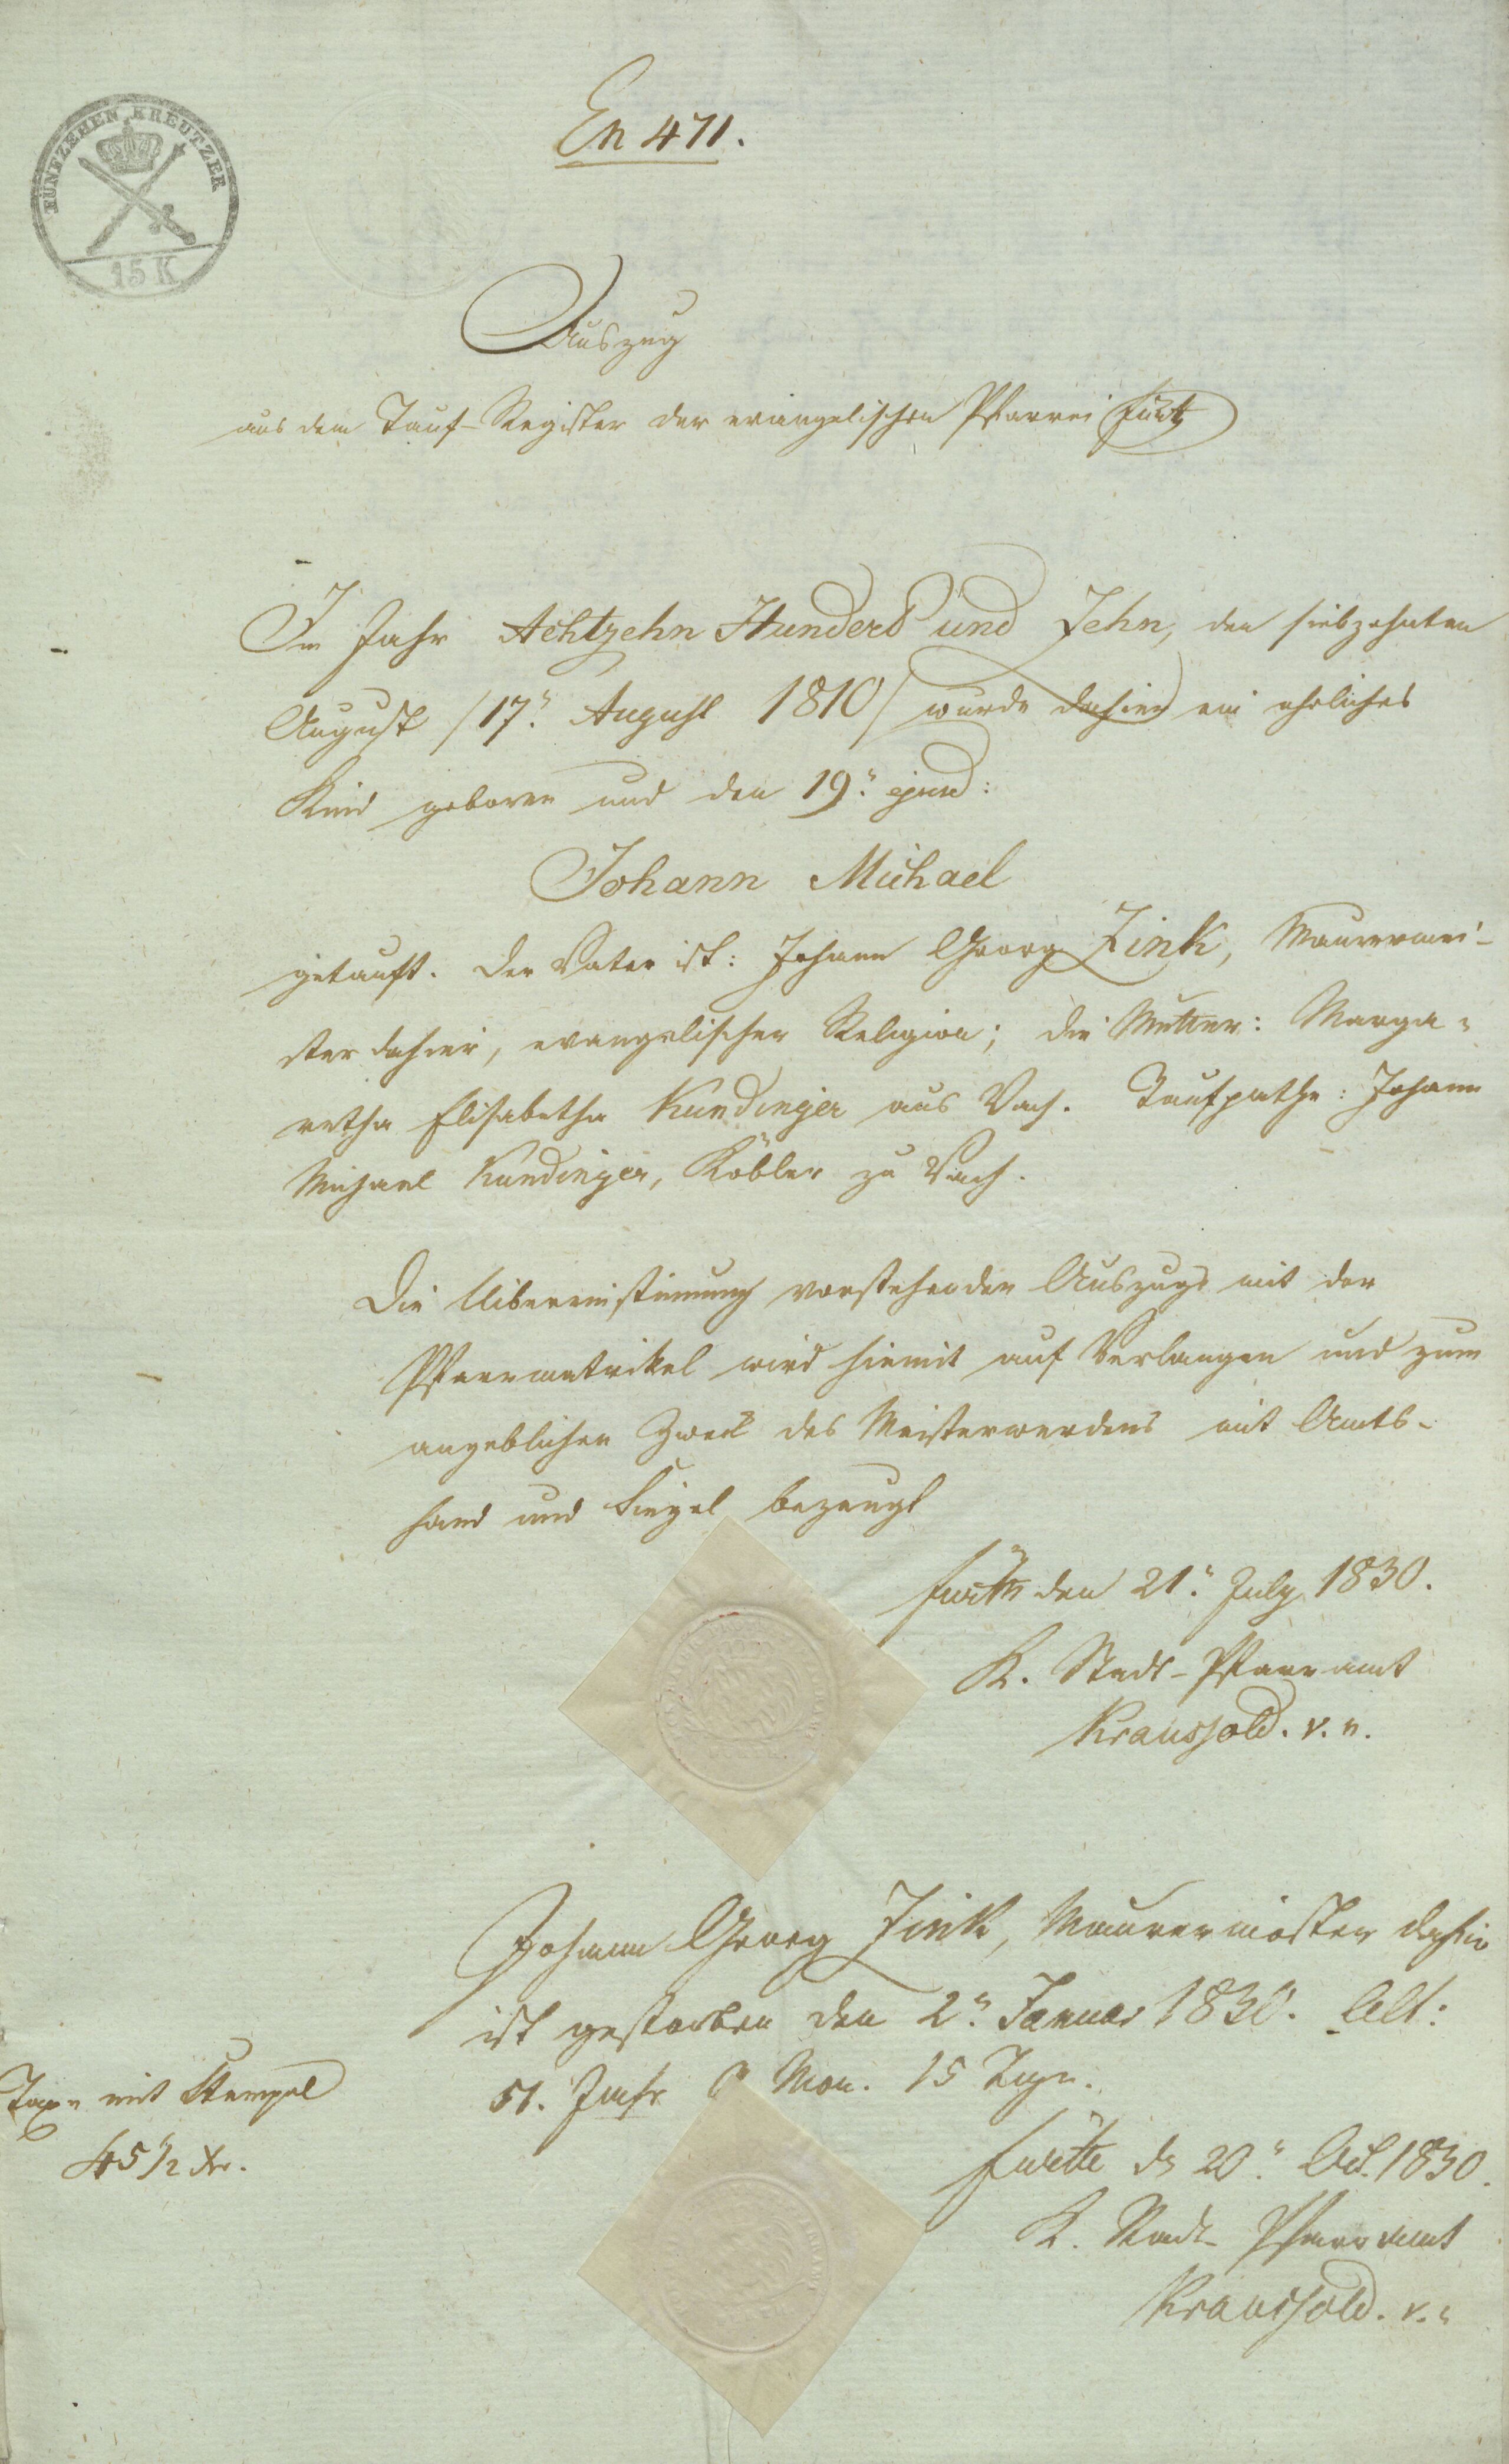 FÜNFZEHEN KREUTZER
15 K
En 471.
Auszug
aus dem Tauf-Register der evangelischen Pfarrei Fürth
Im Jahr Achtzehn Hundert und Zehn, den siebzehnten
August /17.n August 1810/ wurde dahier ein eheliches
Kind geboren und den 19.n ejusd:
Johann Michael
getauft. Der Vater ist: Johann Georg Zink, Maurermei-
ster dahier, evangelischer Religion; die Mutter: Marga-
retha Elisabetha Kündinger aus Vach. Taufpathe: Johann
Michael Kündinger, Köbler zu Vach.
Die Uibereinstimmung vorstehenden Auszugs mit der
Pfarrmatrikel wird hiemit auf Verlangen und zum
angeblichen Zweck des Meisterwerdens mit Amts-
hand und Siegel bezeugt
Fürth den 21.n July 1830.
K. Stadt-Pfarramt
Kraussold. v. n.
Johann Georg Zink, Maurermeister dahier
ist gestorben den 2.n Januar 1830. Alt:
51. Jahr Mon. 15 Tage.
Taxe mit Stempel
45 1/2 Xr.
Fürth d. 20.n Oct. 1830.
K. Stadt-Pfarramt
Kraussold. v. n.